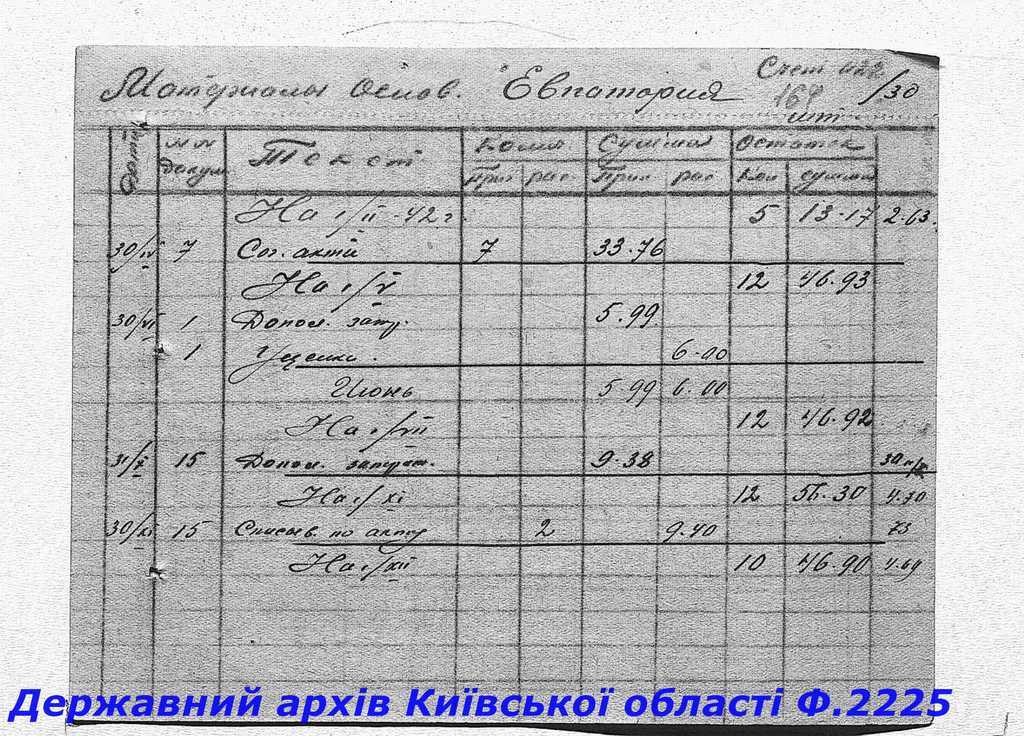 Материалы основ. "Евпатория Счет 422 /30
169
шт
Дата NN докум Текст Колич Сумма Остаток
При рас Прих рас Кол сумма
На 1/II-42 г. 5 13.17 2.63.
30/IV 7 Сог. акта 7 33.76
На 1/V 12 46.93
30/VI 1 Допол. затр. 5.99
1 Уценка. 6.00
Июнь 5.99 6.00
На 1/VII 12 46.92
31/X 15 Допол. затрат. 9.38
На 1/XI 12 56.30 4.70
30/XI 15 Списыв. по акту 2 9.40 73
На 1/XII 10 46.90 4.69
Державний архів Київської області Ф.2225